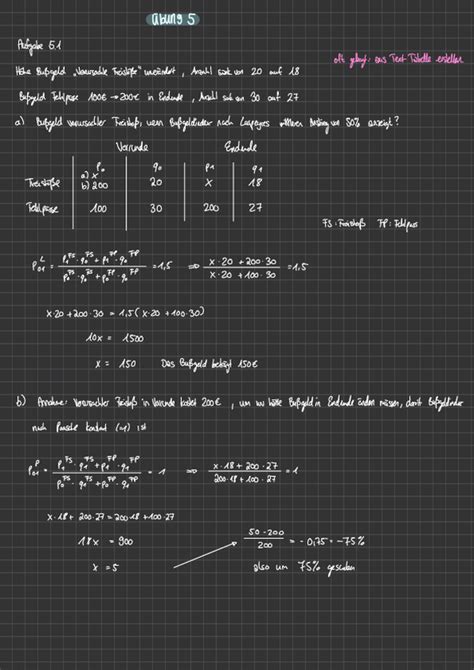 Übung 5
Aufgabe 5.1
oft gefragt: aus Text Tabelle erstellen
Höhe Bußgeld "Verursachte Freistöße" unverändert, Anzahl sinkt von 20 auf 18
Bußgeld Fehlpässe 100€ → 200€ in Endrunde, Anzahl sinkt von 30 auf 27
a) Bußgeld verursachter Freistoß, wenn Bußgeldindex nach Laspeyres mittleren Anstieg von 50% anzeigt?
Vorrunde Endrunde
p₀ q₀ p₁ q₁
Freistöße a) x b) 200 20 x 18
Fehlpässe 100 30 200 27
FS: Freistoß FP: Fehlpass
P₀₁ᴸ = (p₁^FS · q₀^FS + p₁^FP · q₀^FP) / (p₀^FS · q₀^FS + p₀^FP · q₀^FP) = 1,5 ⇒ (x · 20 + 200 · 30) / (x · 20 + 100 · 30) = 1,5
x · 20 + 200 · 30 = 1,5 (x · 20 + 100 · 30)
10x = 1500
x = 150 Das Bußgeld beträgt 150€
b) Annahme: Verursachter Freistoß in Vorrunde kostet 200€, um Höhe Bußgeld in Endrunde ändern müssen, damit Bußgeldindex
nach Paasche konstant (=1) ist
P₀₁ᴾ = (p₁^FS · q₁^FS + p₁^FP · q₁^FP) / (p₀^FS · q₁^FS + p₀^FP · q₁^FP) = 1 ⇒ (x · 18 + 200 · 27) / (200 · 18 + 100 · 27) = 1
x · 18 + 200 · 27 = 200 · 18 + 100 · 27
18x = 900
x = 5
(50 - 200) / 200 = -0,75 = -75%
also um 75% gesunken